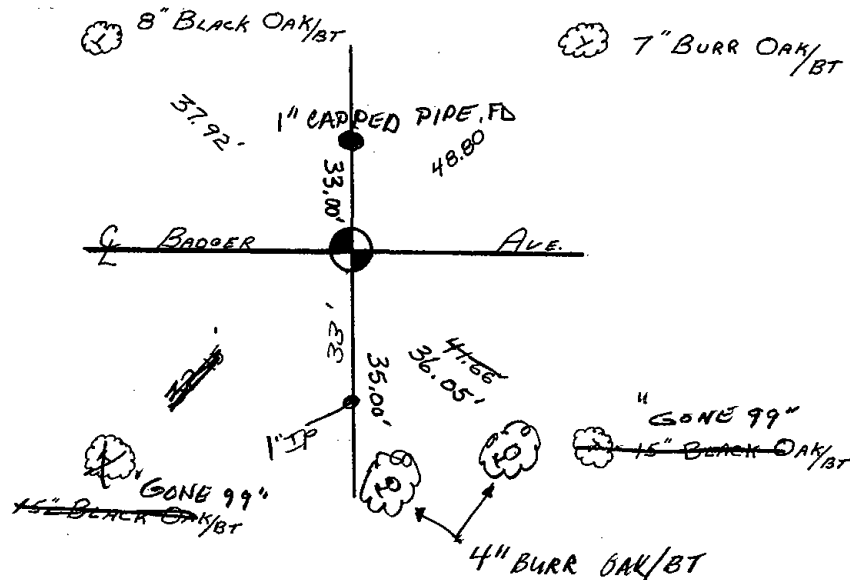 8" BLACK OAK/BT
7" BURR OAK/BT
37.92'
1" CAPPED PIPE, FD
48.80
33.00'
CL BADGER AVE.
33'
41.66'
36.05'
35.00'
1" IP
"GONE 99"
15" BLACK OAK/BT
"GONE 99"
15" BLACK OAK/BT
4" BURR OAK/BT